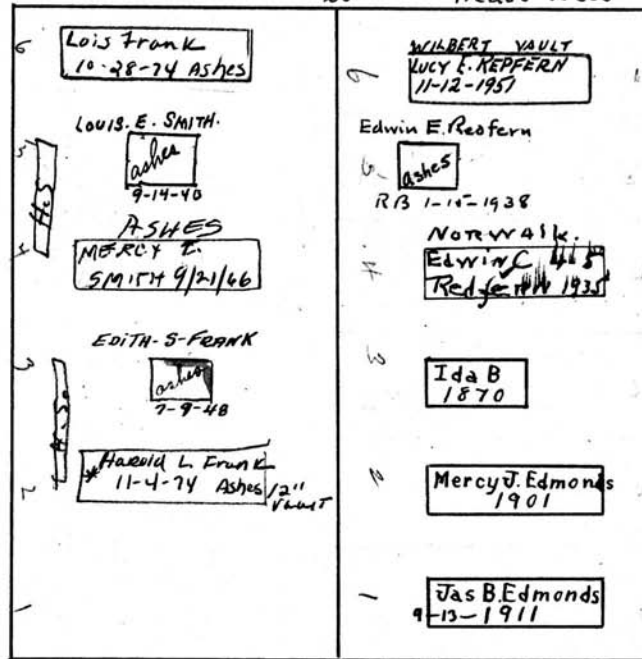 6
Lois Frank
10-28-74 Ashes
LOUIS. E. SMITH.
5
ashes
9-14-40
H.S
4
ASHES
MERCY E.
SMITH 9/21/66
EDITH-S-FRANK
3
ashes
7-9-48
H.S.
2
*Harold L Frank
11-4-74 Ashes
12"
VAULT
1
WILBERT VAULT
6
LUCY E. REPFERN
11-12-1951
Edwin E. Redfern
5
ashes
RB 1-15-1938
NORWALK.
4
Edwin C
Redfern 1935
3
Ida B
1870
2
Mercy J. Edmonds
1901
1
Jas B. Edmonds
9-13-1911